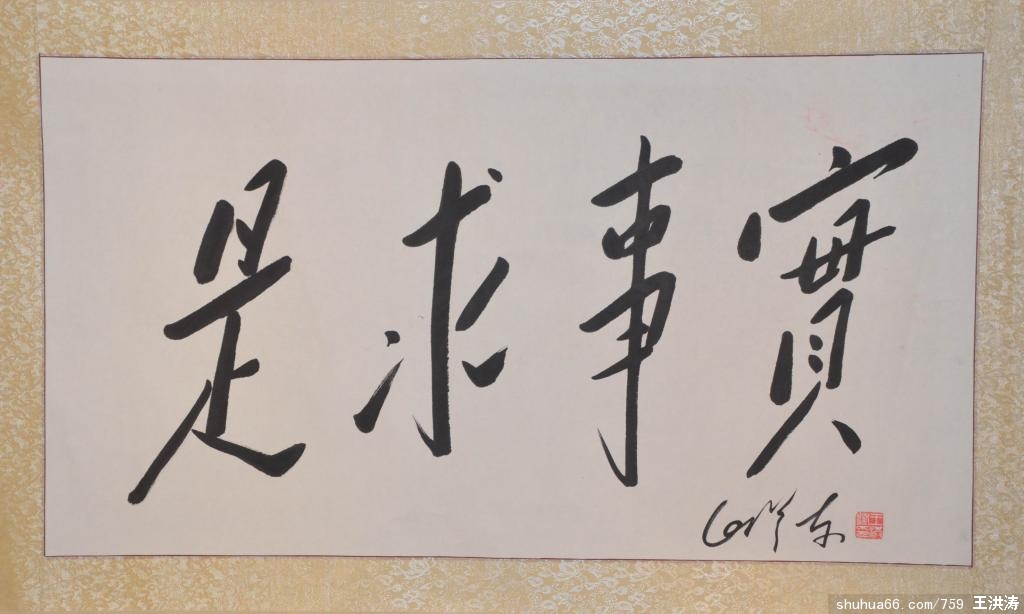 實事求是
毛澤东
shuhua66.com/759 王洪涛